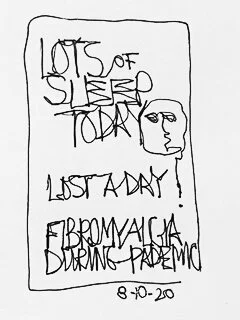 LOTS OF
SLEEP
TODAY
LOST A DAY!
FIBROMYALGIA
DURING PADEMIC
8-10-20